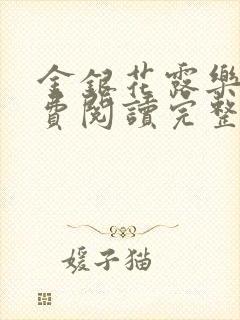 金銀花露樂
費閱讀完整
媛子猫